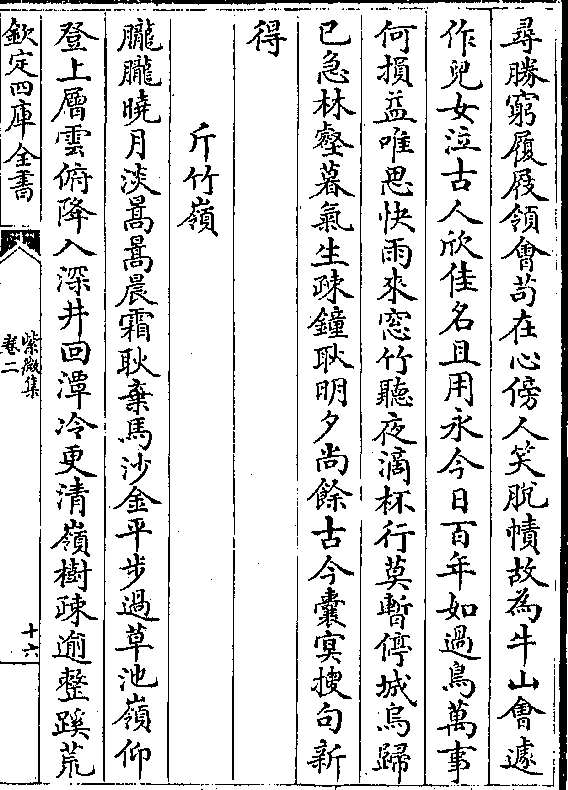 尋勝窮履屐領會茍在心傍人笑脫幘故為牛山會遽
作兒女泣古人欣佳名且用永今日百年如過鳥萬事
何損益唯思快雨來窓竹聽夜滴杯行莫暫停城烏歸
已急林壑暮氣生疎鐘耿明夕尚餘古今囊㝠搜句新
得
斤竹嶺
朧朧曉月淡暠暠晨霜耿棄馬沙金平步過草池嶺仰
登上層雲俯降入深井回潭冷更清嶺樹疎逾整蹊荒
欽定四庫全書
紫微集
卷二
十六